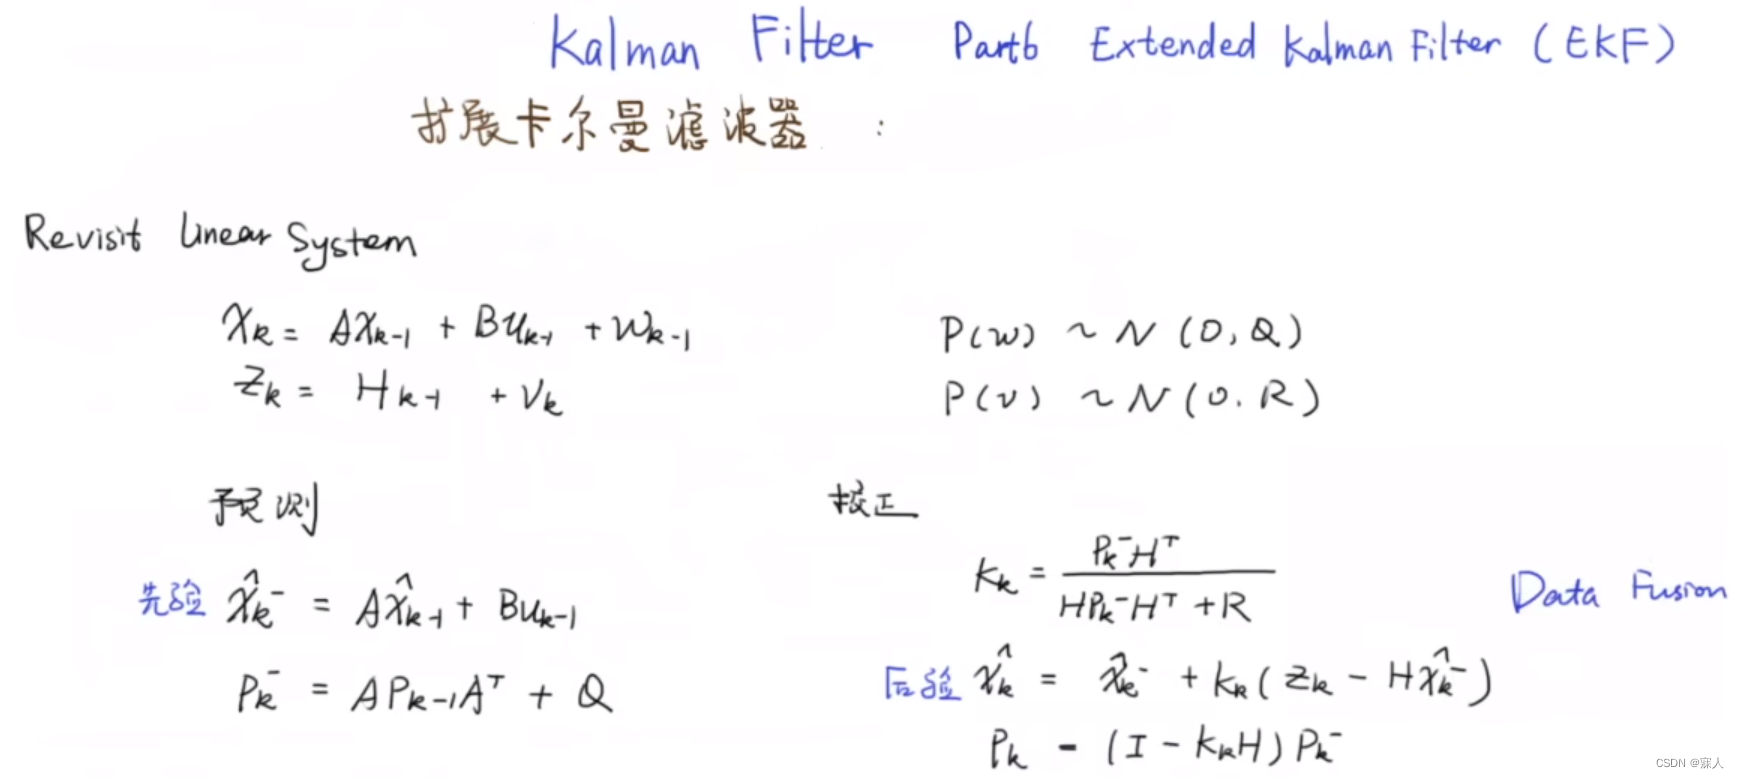 Kalman Filter Part6 Extended Kalman Filter (EKF)
扩展卡尔曼滤波器 :
Revisit Linear System
X_k = AX_{k-1} + Bu_{k-1} + w_{k-1}
P(w) ~ N(0, Q)
Z_k = H_{k-1} + V_k
P(v) ~ N(0, R)
预测
校正
先验 X̂_k^- = AX̂_{k-1} + Bu_{k-1}
K_k = P_k^- H^T / (HP_k^- H^T + R)
Data Fusion
P_k^- = AP_{k-1}A^T + Q
后验 X̂_k = X̂_k^- + K_k(Z_k - HX̂_k^-)
P_k = (I - K_kH)P_k^-
CSDN @寐人